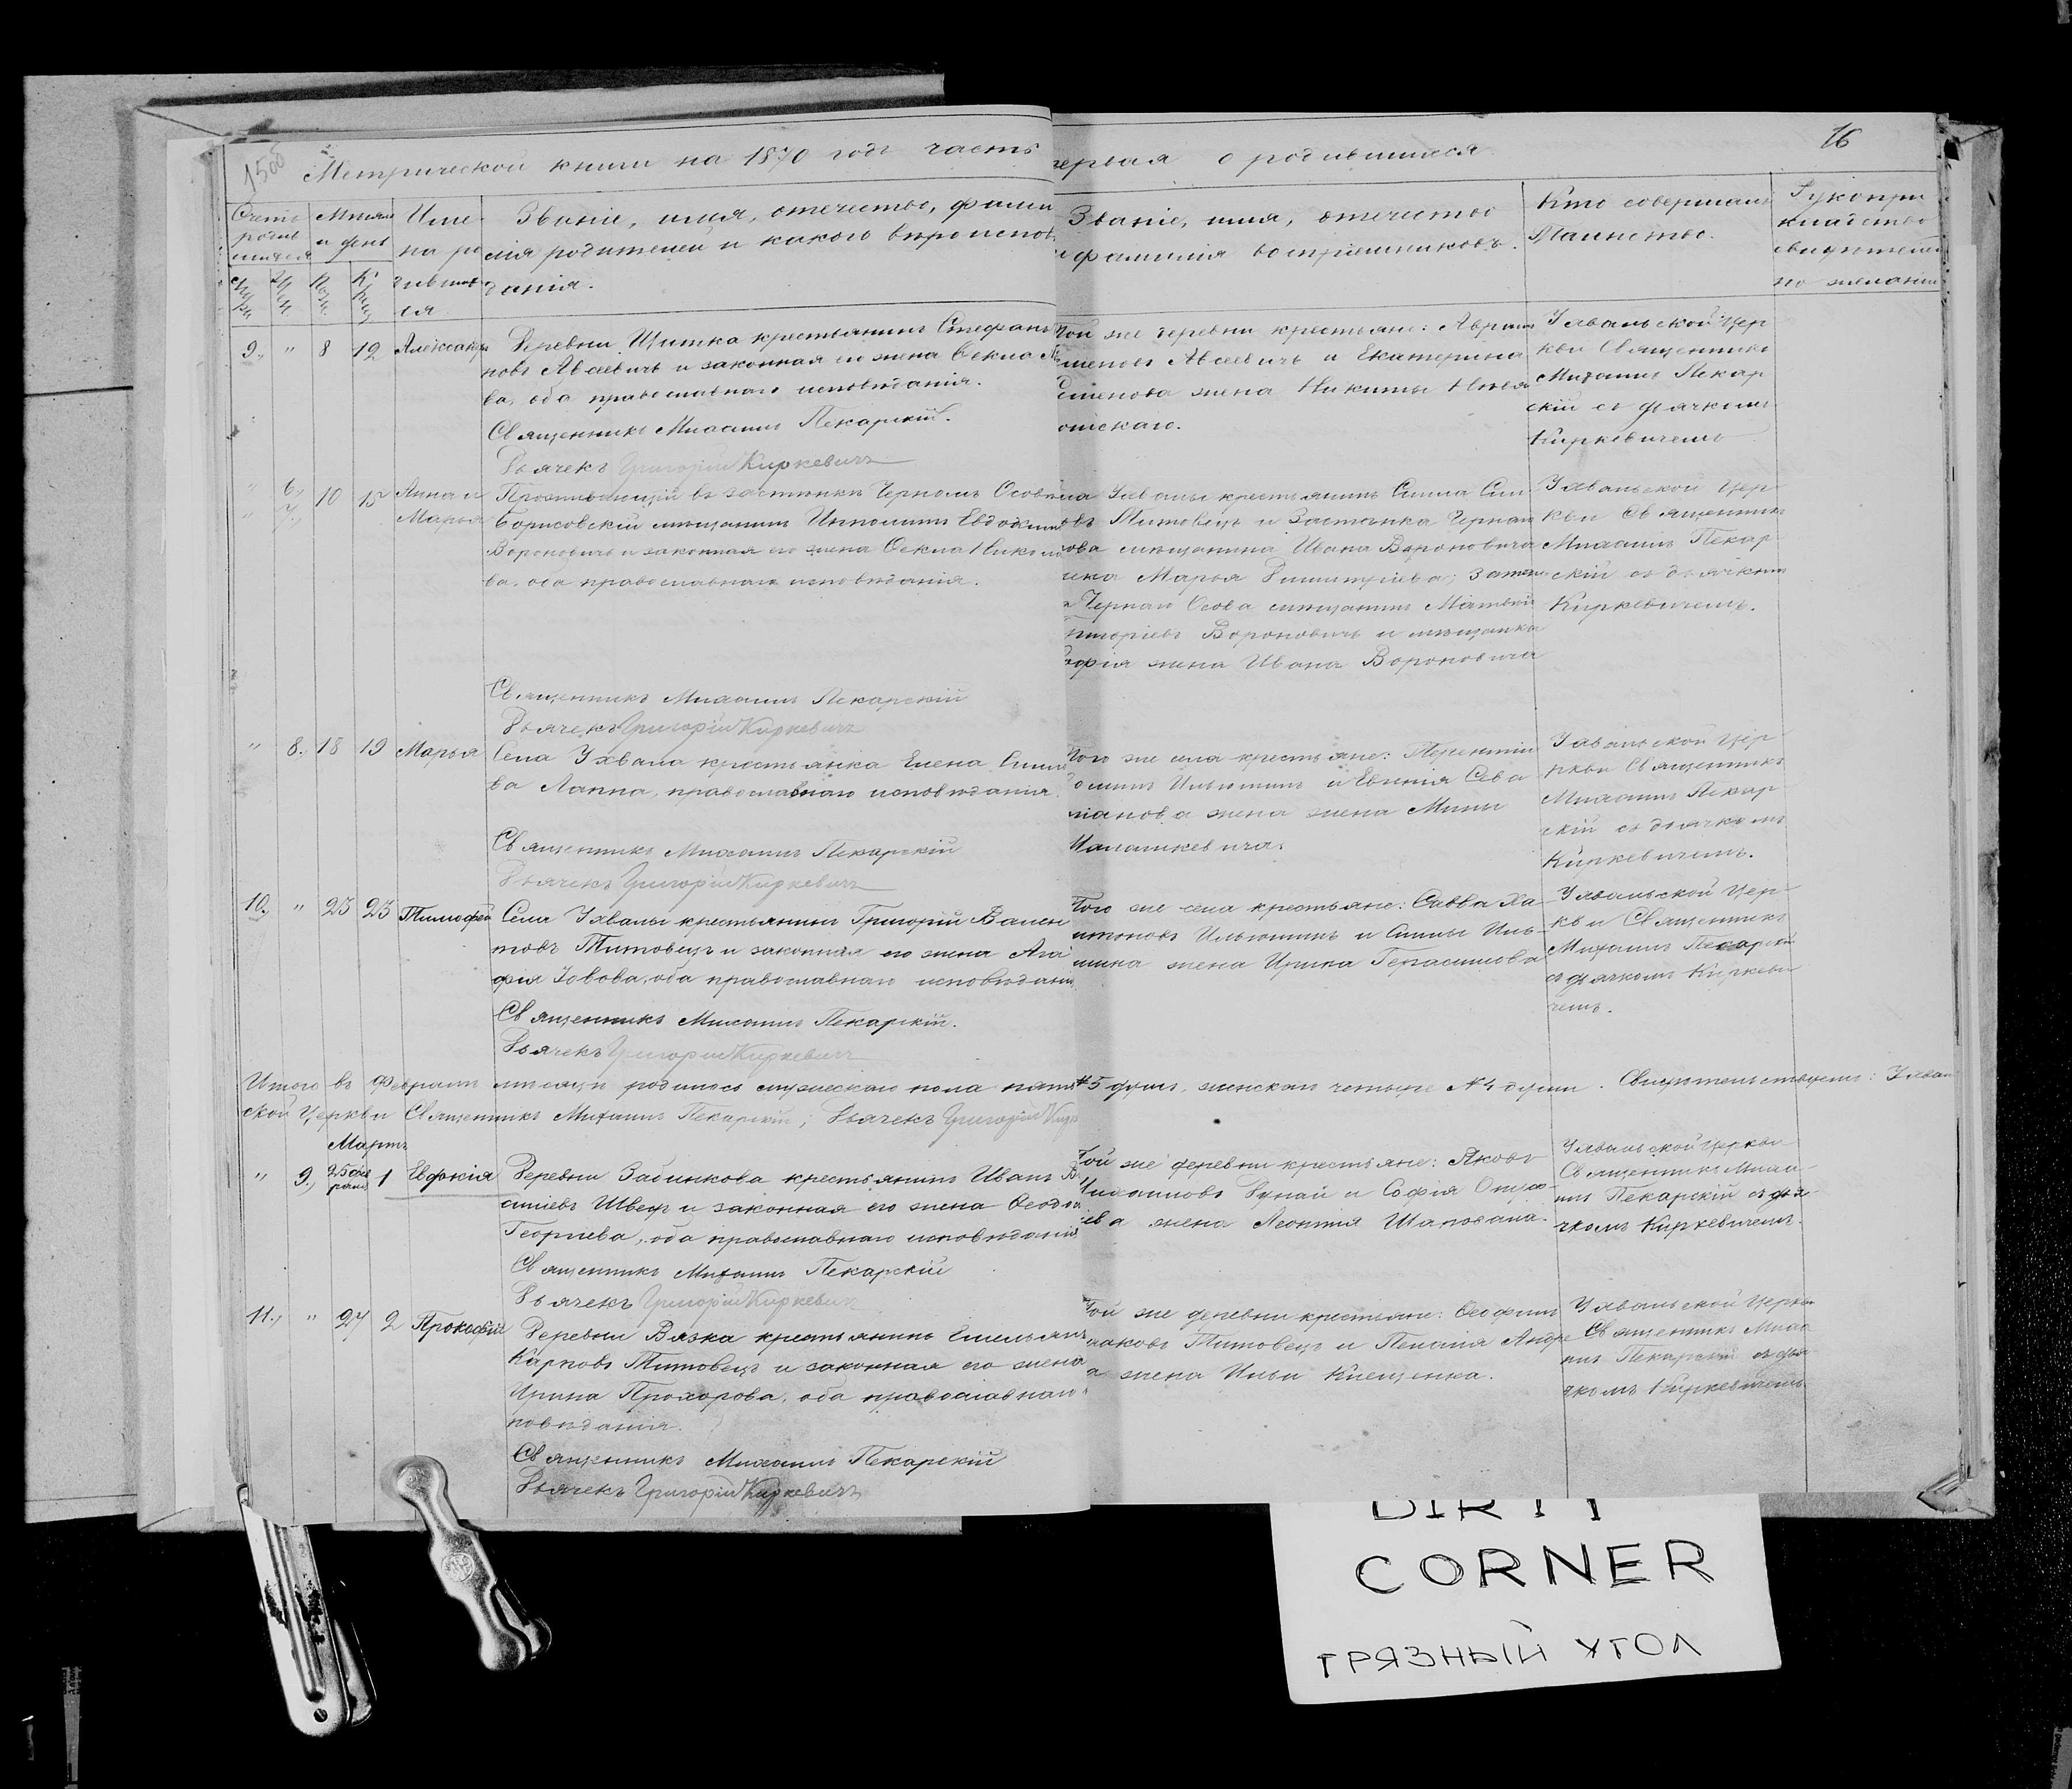 15об
Метрической книги на 1870 годъ часть
первая о родившихся
16
Счетъ родив шихся
Мѣсяцъ и день
Име на ро дившихся
Званіе, имя, отечество, фами
лія родителей и какого вѣроиспов
данія.
Званіе, имя, отчество
и фамилія воспріемниковъ.
Кто совершалъ
Таинство.
Рукопри
кладство
свидѣтелей
по желанію
9., " 8 12 Александръ
Деревни Шитка крестьянинъ Стефанъ
новъ Авсеевичъ и законная его жена Ѳекла
ва, оба православнаго исповѣданія.
Священникъ Михаилъ Пекарскій.
Дьячекъ Григорій Киркевичъ
Той же деревни крестьяне: Аврам
Семеновъ Авсеевичъ и Екатерина
Семенова жена Никиты
Ухвальской Цер
кви Священникъ
Михаилъ Пекар
скій съ дьячкомъ
Киркевичемъ
" 6., 7., 10 15 Анна и
Марья
Проживающій въ застѣнкѣ Черномъ Осовѣ
Борисовскій мѣщанинъ Ипполитъ Евдоким
Вороновичъ и законная его жена Ѳекла Никола
ва, оба православнаго исповѣданія.
Священникъ Михаилъ Пекарскій
Дьячекъ Григорій Киркевичъ
ла Ухвалы крестьянинъ Симла Сим
овъ Титовецъ и Застѣнка Чернаго
сова мѣщанина Ивана Вороновича
Марья Димитріева; Застѣн
Чернаго Осова мѣщанинъ Матвей
Григоріевъ Вороновичъ и мѣщанка
Софія жена Ивана Вороновича
Ухвальской Цер
кви Священникъ
Михаилъ Пекар
скій съ дьячкомъ
Киркевичемъ.
" 8. 18 19 Марья
Села Ухвала крестьянка Елена
ва Лаппа, православнаго исповѣданія.
Священникъ Михаилъ Пекарскій
Дьячекъ Григорій Киркевичъ
Того же села крестьяне: Терентій
Ильютинъ и Евгенія Сева
стіанова жена жена Мины
Игнашкевича.
Ухвальской Цер
ркви Священникъ
Михаилъ Пекар
скій съ дьячкомъ
Киркевичемъ.
10., " 23 23 Тимофей
Села Ухвалы крестьянинъ Григорій Вален
товъ Титовецъ и законная его жена Ага
фія Іовова, оба православнаго исповѣданія
Священникъ Михаилъ Пекарскій.
Дьячекъ Григорій Киркевичъ
Того же села крестьяне: Савва Ха
ритоновъ Ильютинъ и Симы Иль
тина жена Ирина Герасимова
Ухвальской Цер
кви Священникъ
Михаилъ Пекарскій
съ дьячкомъ Киркеви
чемъ.
Итого въ Февралѣ мѣсяцѣ родилось мужескаго пола пять №5 душъ, женскаго четыре №4 души. Свидѣтельствуемъ: Ухваль
ской Церкви Священникъ Михаилъ Пекарскій, Дьячекъ Григорій Кирк
Мартъ
" 9., 25 фев раля 1 Евдокія
Деревни Забинкова крестьянинъ Иванъ
силіевъ Швецъ и законная его жена Ѳеодо
Георгіева, оба православнаго исповѣданія
Священникъ Михаилъ Пекарскій
Дьячекъ Григорій Киркевичъ
Той же деревни крестьяне: Яковъ
Михайловъ Дунай и Софія
ева жена Леонтія Шаповала.
Ухвальской Церкви
Священникъ Миха
илъ Пекарскій съ дья
чкомъ Киркевичемъ.
11., " 27 2 Прокофій
Деревни Вязка крестьянинъ Емельянъ
Карповъ Титовецъ и законная его жена
Ирина Прохорова, оба православнаго
повѣданія.
Священникъ Михаилъ Пекарскій
Дьячекъ Григорій Киркевичъ
Той же деревни крестьяне: Ѳеофилъ
Исаковъ Титовецъ и Пелагія Андре
а жена Ильи Киещенка.
Ухвальской Церкви
Священникъ Миха
илъ Пекарскій съ дья
чкомъ Киркевичемъ
DIRTY
CORNER
ГРЯЗНЫЙ УГОЛ